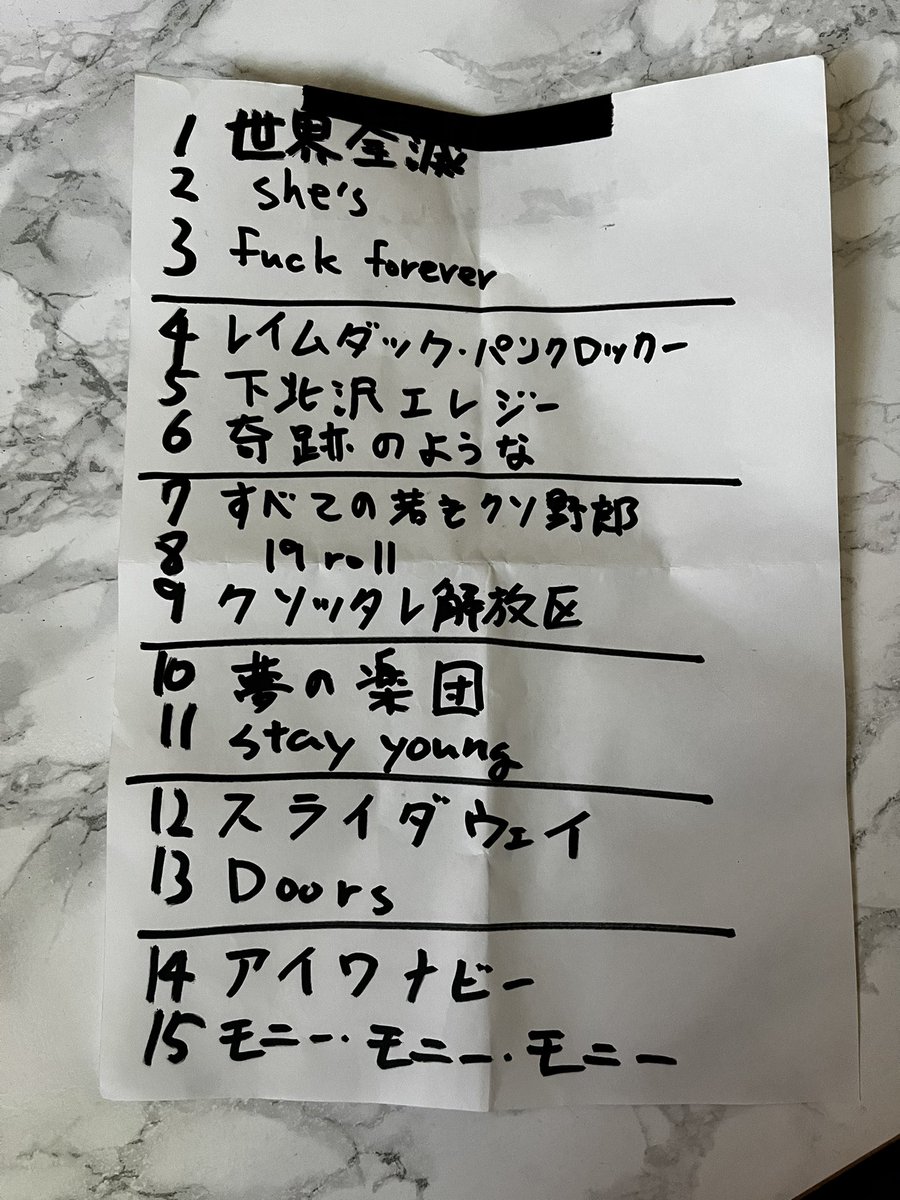 1 世界全滅
2 she's
3 fuck forever
4 レイムダック・パンクロッカー
5 下北沢エレジー
6 奇跡のような
7 すべての若きクソ野郎
8 19 roll
9 クソッタレ解放区
10 夢の楽団
11 stay young
12 スライダウェイ
13 Doors
14 アイワナビー
15 モニー・モニー・モニー